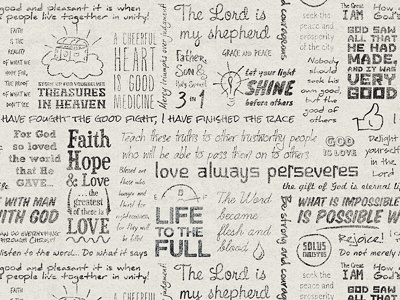 good and pleasant it is when
people live together in unity!
FAITH
IS THE
REALITY
OF WHAT WE
HOPE FOR,
THE PROOF
OF WHAT WE
DON'T SEE
STORE UP FOR YOURSELVES
TREASURES
IN HEAVEN
A CHEERFUL
HEART
IS GOOD
MEDICINE
Mercy triumphs over judgment
The Lord is
my shepherd
Father,
Son &
Holy Spirit
3 in 1
GRACE AND PEACE
Let your light
SHINE
before others
courageous
seek the
peace and
prosperity
of the city
Nobody
should
seek his
own good,
but the
good of
others
The Great
I AM
How good
God's
GOD SAW
ALL THAT
HE HAD
MADE,
AND IT WAS
VERY
GOOD
HAVE FOUGHT THE GOOD FIGHT, I HAVE FINISHED THE RACE
For God
so loved
the world
that He
GAVE...
Faith
Hope
& Love
...the
greatest
of these is
LOVE
Teach these truths to other trustworthy people
who will be able to pass them on to others
GOD
IS LOVE
Delight
yourself
in the
Lord
love always perseveres
the gift of God is eternal
Blessed are
those who
hunger and
thirst for
righteousness,
for they will
be filled
LIFE
TO THE
FULL
The Word
became
flesh and
blood
Be strong and courageous
WITH MAN
WITH GOD
CAN DO EVERYTHING
THROUGH CHRIST!
WHAT IS IMPOSSIBLE
IS POSSIBLE
SOLUS
CHRISTUS
Rejoice!
Do not merely
listen to the word... Do what it says
good and pleasant it is when
people live together in unity!
FAITH
A CHEERFUL
HEART
The Lord is
my shepherd
seek the
peace and
prosperity
The Great
I AM
How good
God's
GOD SAW
ALL THAT